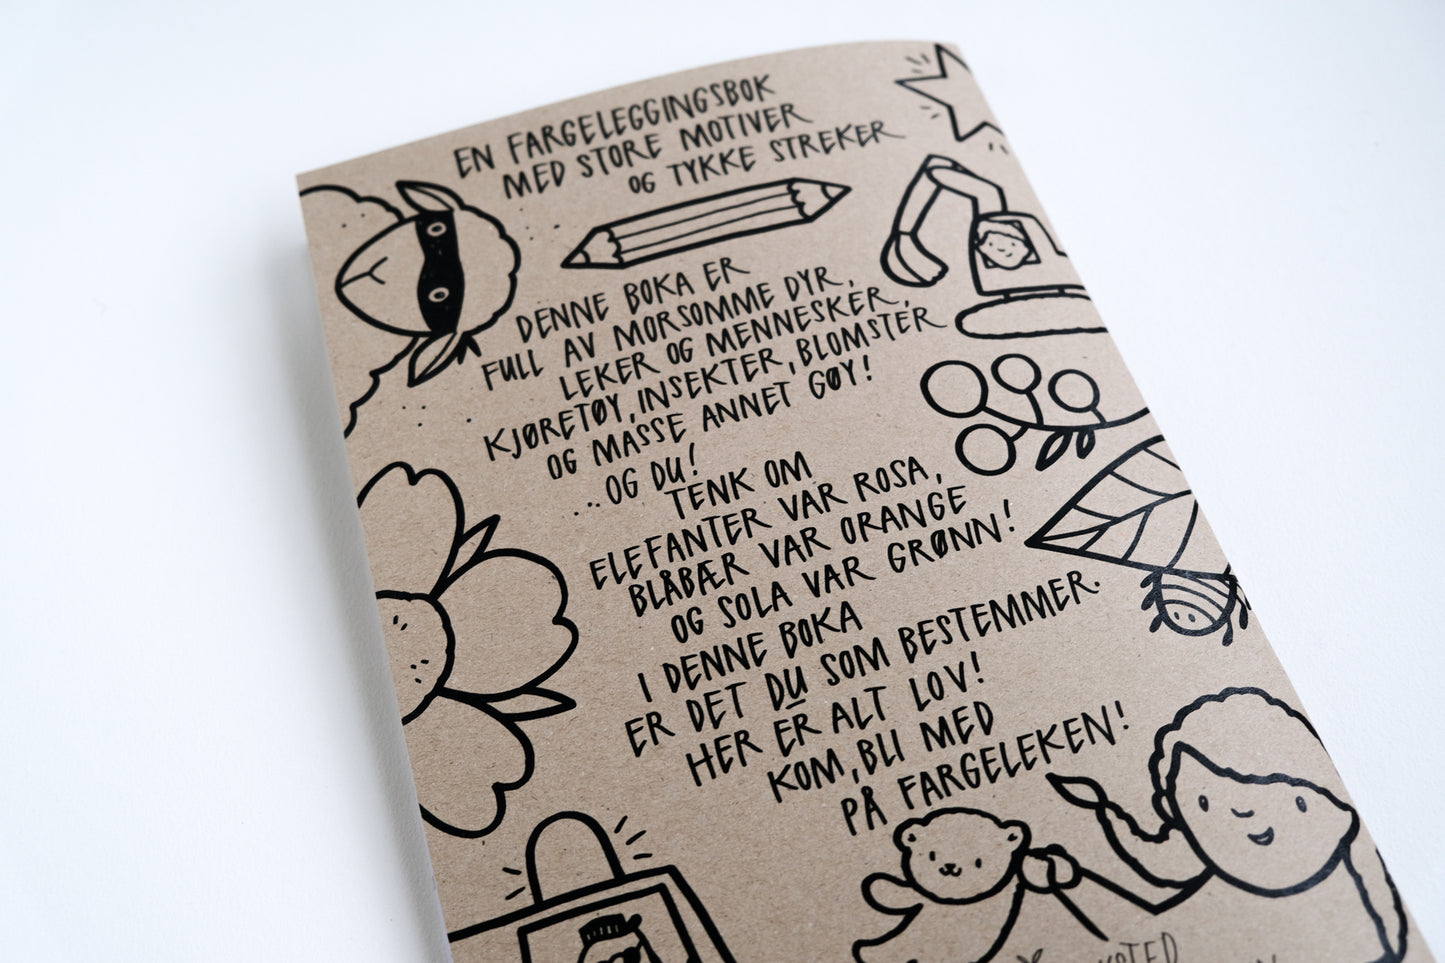 EN FARGELEGGINGSBOK
MED STORE MOTIVER
OG TYKKE STREKER
DENNE BOKA ER
FULL AV MORSOMME DYR,
LEKER OG MENNESKER,
KJØRETØY, INSEKTER, BLOMSTER
OG MASSE ANNET GØY!
...OG DU!
TENK OM
ELEFANTER VAR ROSA,
BLÅBÆR VAR ORANGE
OG SOLA VAR GRØNN!
I DENNE BOKA
ER DET DU SOM BESTEMMER.
HER ER ALT LOV!
KOM, BLI MED
PÅ FARGELEKEN!